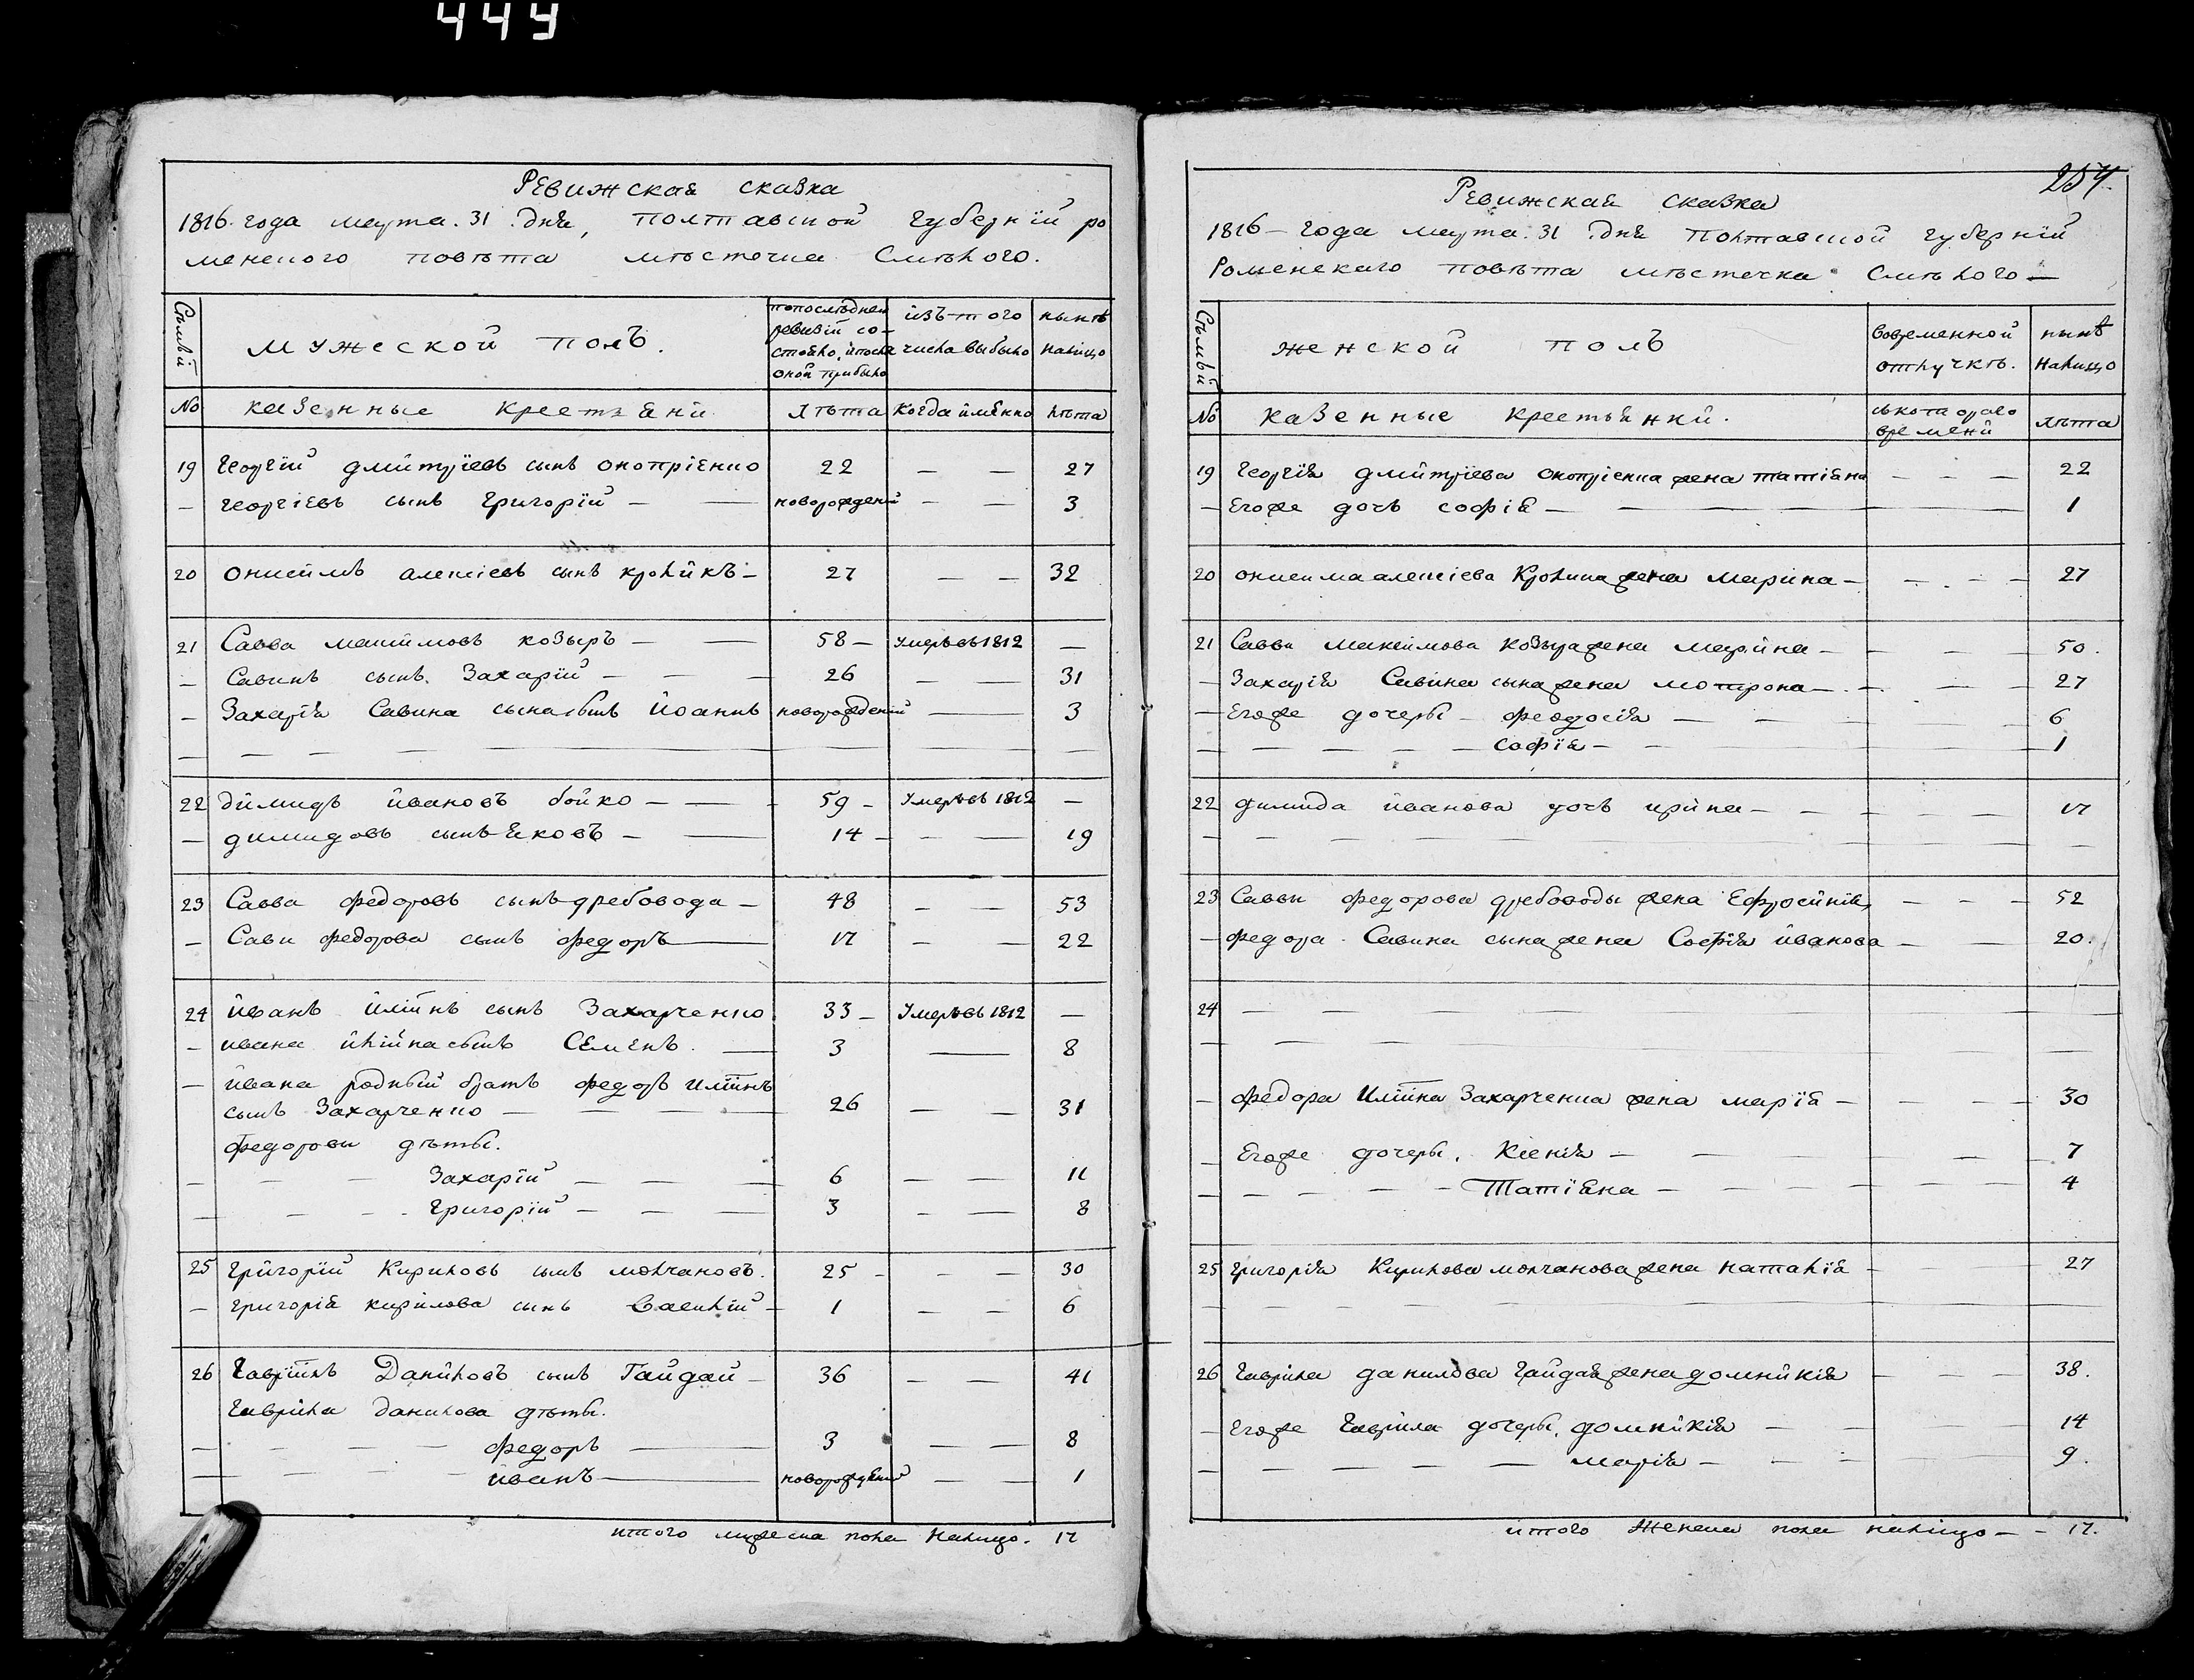 449
Ревижская сказка
1816 года марта 31 дня, полтавской губернїй ро
менского повѣта мѣстечка Смѣлого.
Сѣмьй
мужеской полъ.
попослѣдней
ревизїй со-
стояло, и после
оной прибыло
изъ того
числа выбыло
нынѣ
налицо
№
казенные крестяни
лѣта
когда имянно
лѣта
19 Георгїй дмитрїевъ сынъ оноприенко 22 — — 27
— георгіевъ сынъ григорїй — — новорожденый — — 3
20 онисимъ алексіевъ сынъ кроликъ — 27 — — 32
21 Савва максимовъ козыръ — — 58 — умеръ въ 1812 —
— Савинъ сынъ Захарїй — — — 26 — — 31
— Захарїя Савина сына сынъ иоаннъ новорожденый — 3
22 димидъ ивановъ бойко — — - 59 - умеръ въ 1812 —
— димидовъ сынъ яковъ — — 14 — — — 19
23 Савва федоровъ сынъ дребовода — 48 — — 53
— Сави федорова сынъ федоръ — 17 — — 22
24 иванъ илїинъ сынъ Захарченко 33 — умеръ въ 1812 —
— ивана илїина сынъ Семенъ. — 3 — 8
— ивана родный братъ федоръ илїинъ
сынъ Захарченко — — — — 26 — — 31
федорови дѣты.
— — — Захарїй — — — 6 — — 11
— — - - Григорїй — — — 3 — — 8
25 григорїй Кириловъ сынъ молчановъ. 25 - — — 30
— григорія кирилова сынъ Василїй — 1 — — 6
26 Гаврїилъ Даниловъ сынъ Гайдай — 36 — — 41
Гаврила данилова дѣты.
— — — — федоръ — 3 — — 8
— — — — иванъ — новорожденый — — 1
итого мужеска пола налицо. 17
257.
Ревижская сказка
1816 — года марта 31 дня полтавской губернїй
Роменскаго повѣта мѣстечка Смѣлого —
Сѣмьй
женской полъ
вовременной
отлучкѣ.
нынѣ
налицо
№
казенные крестьянки.
съкотораго
времени
лѣта
19 георгїя дмитрїева оноприенка жена татіана — — — 22
— Егоже дочъ софія — — — — — 1
20 онисима алексіева Кролика жена Марина — — . — — 27
21 Савви максимова козыра жена марина — — — — 50.
— Захарїя Савина сына жена мотрона — — — — 27
— Егоже дочеры — феодосія — — — — 6
— — — — — — софїя — — — 1
22 димида иванова дочъ ирина — — — — — — 17
— — — — — — — — — —
23 Савви федорова дребоводы жена Ефросинія — — — 52
— федора Савина сына жена Софїя иванова — — 20.
24 — — — — — — — —
— — — — — —
— федора илїина Захарченка жена марїя — — — — 30
— Егоже дочеры, Ксенія — — — — — 7
— — — — — — Татїяна — — — — — — 4
25 григорїя Кирилова молчанова жена наталїя — — — 27
— — — — — — — —
26 гаврила данилова гайдая жена домникія — — — 38.
— Егоже гаврила дочеры, домникія — — — 14
— — — — — — марїя — — — — — 9.
итого женска пола налицо — - 17.